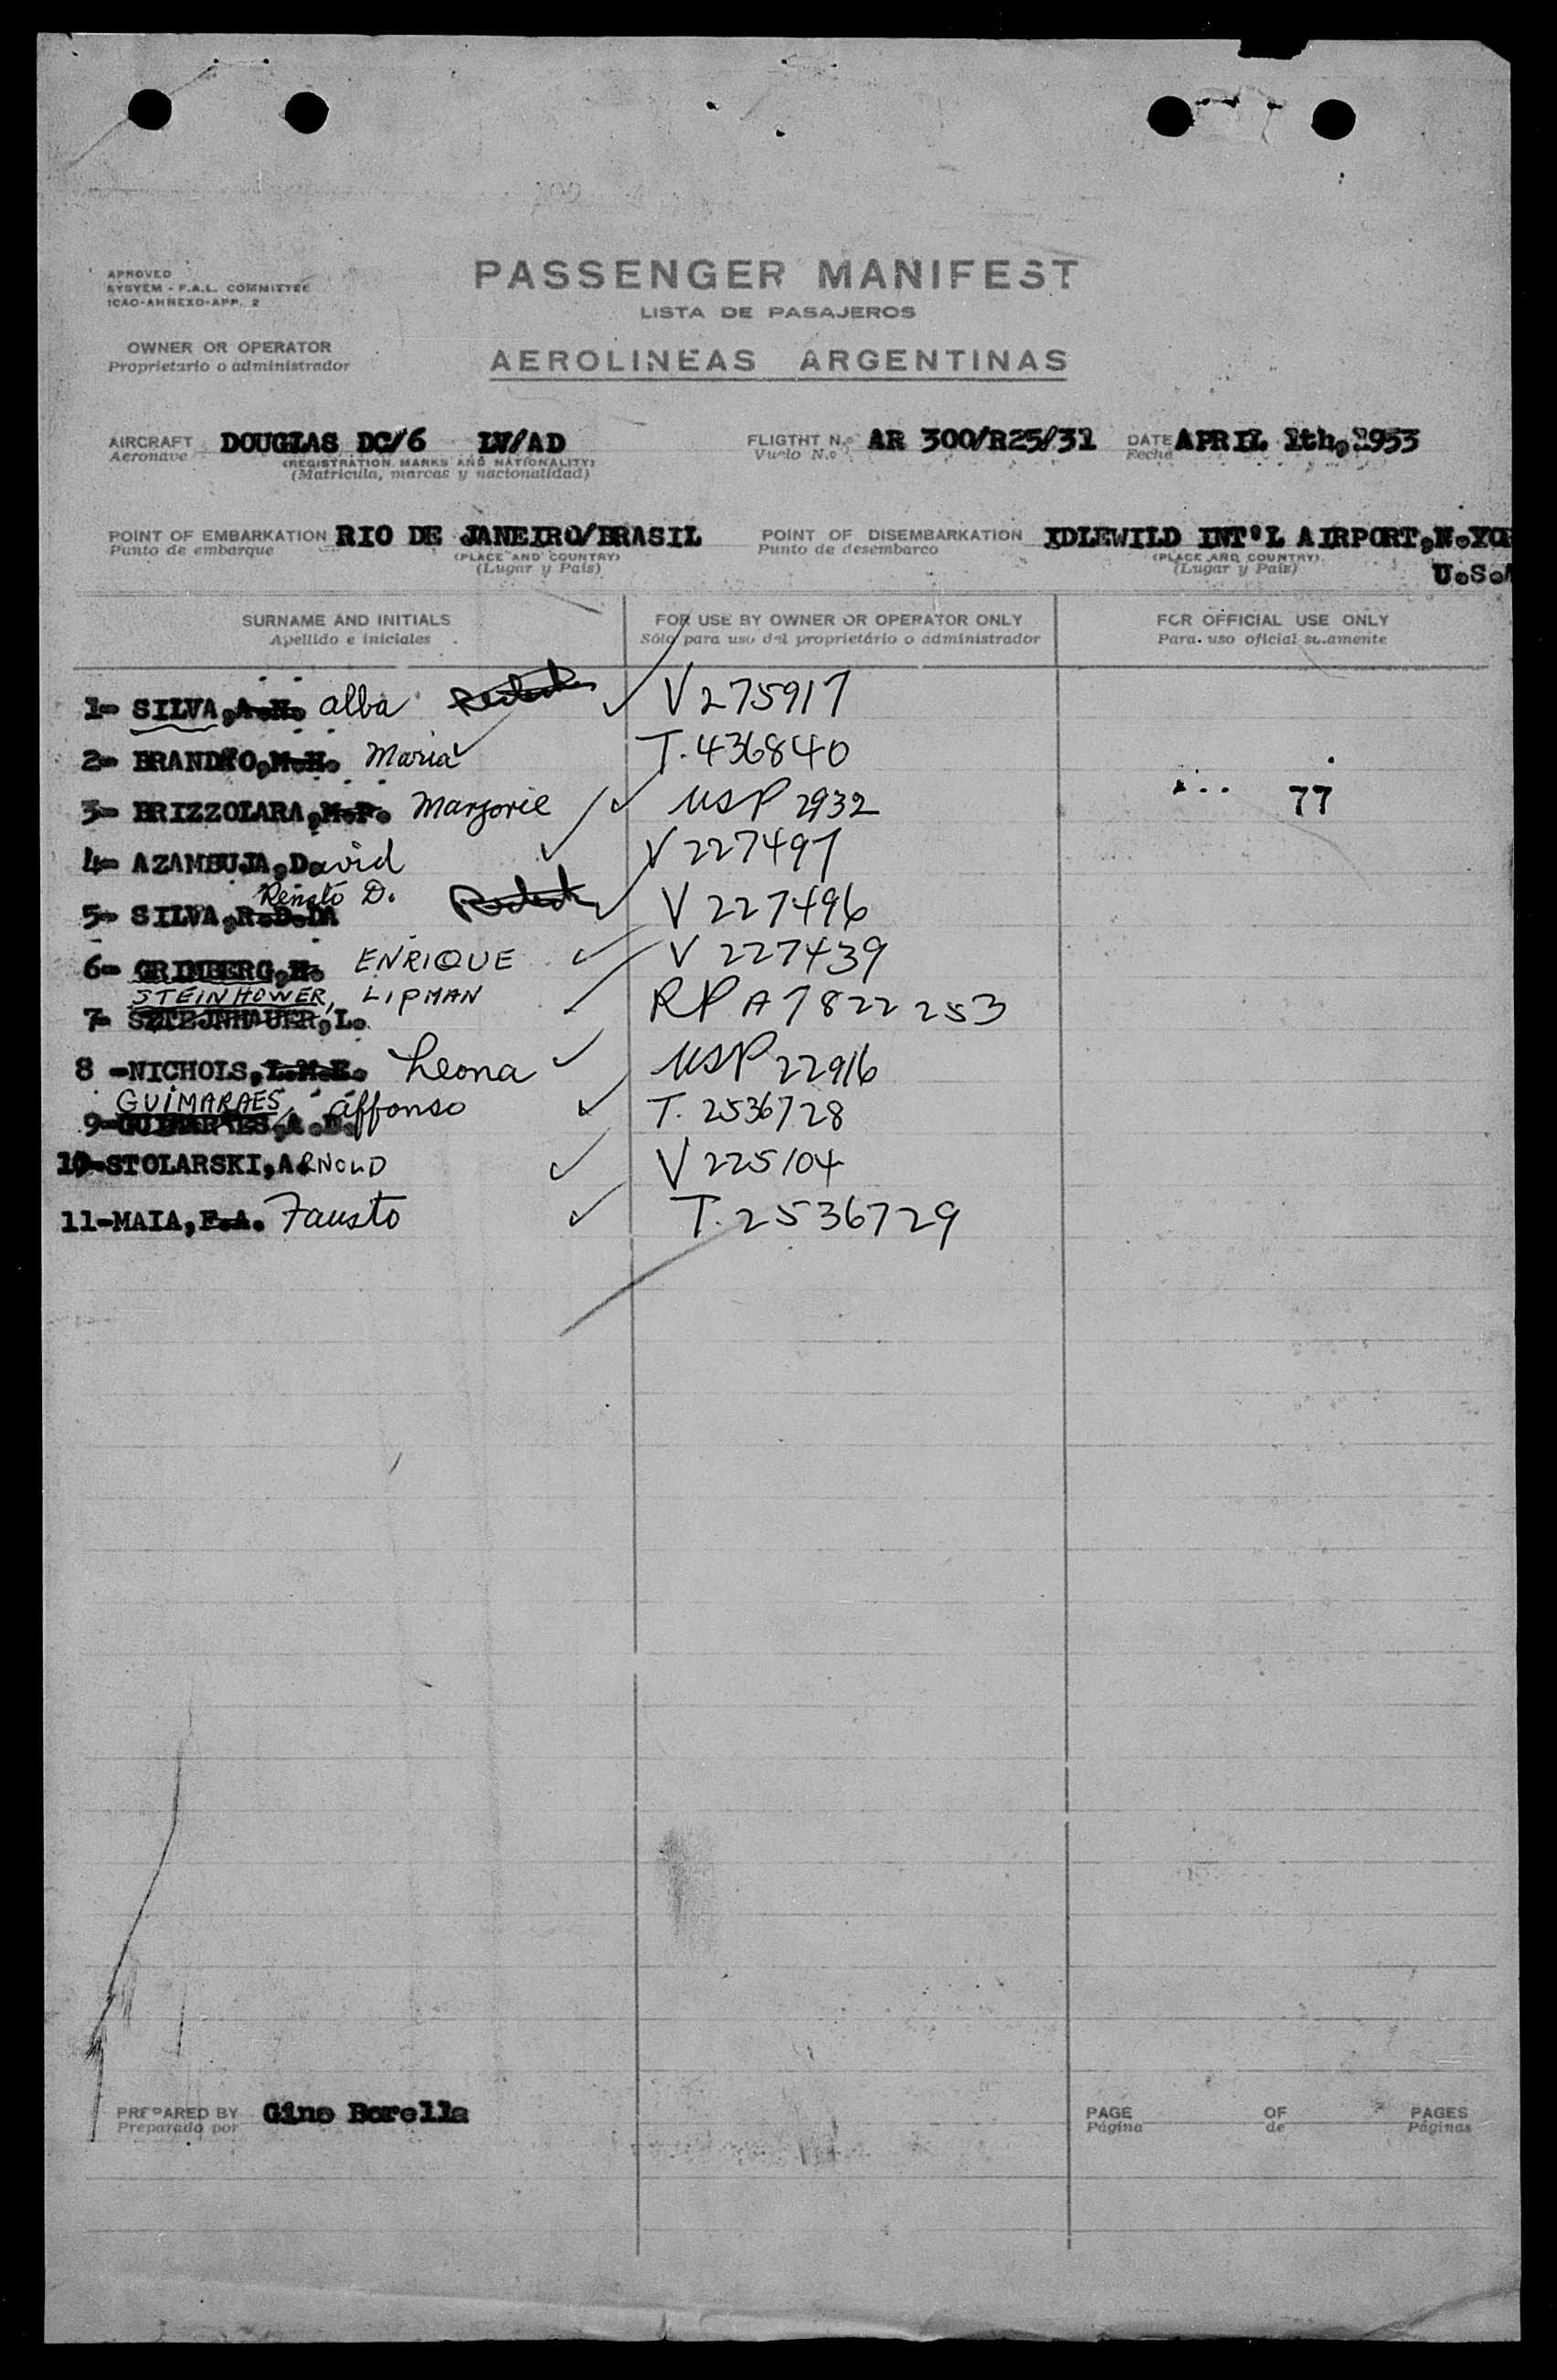 PASSENGER MANIFEST
LISTA DE PASAJEROS
AEROLINEAS ARGENTINAS
APROVED
SYSYEM - F.A.L. COMMITTEE
ICAO-ANNEXO-APP. 2
OWNER OR OPERATOR
Proprietario o administrador
AIRCRAFT DOUGLAS DC/6 LV/AD
Aeronave
(REGISTRATION MARKS AND NATIONALITY)
(Matricula, marcas y nacionalidad)
FLIGTHT N.o AR 300/R25/31
Vuelo N.o
DATE APRIL 1th,1953
Fecha
POINT OF EMBARKATION RIO DE JANEIRO/BRASIL
Punto de embarque
(PLACE AND COUNTRY)
(Lugar y País)
POINT OF DISEMBARKATION IDLEWILD INT'L AIRPORT,N.YOR
Punto de desembarco
(PLACE AND COUNTRY)
(Lugar y País)
U.S.A
SURNAME AND INITIALS
Apellido e iniciales
FOR USE BY OWNER OR OPERATOR ONLY
Sólo para uso del proprietário o administrador
FOR OFFICIAL USE ONLY
Para uso oficial solamente
1- SILVA,A.N. Alba V 275917
2- BRANDÃO,M.H. Maria T. 436840
3- BRIZZOLARA,M.P. Marjorie USP 2932
77
4- AZAMBUJA,David V 227497
Renato D.
5- SILVA,R.D.DA V 227496
6- GRIMBERG,H. ENRIQUE V 227439
STEINHOWER, LIPMAN RPA 7822253
7- SZTEJNHAUER,L.
8 -NICHOLS,L.M.E. Leona USP 22916
GUIMARAES, Affonso T. 2536728
9-GUIMARAES,A.D.
10-STOLARSKI,ARNOLD V 225104
11-MAIA,F.A. Fausto T. 2536729
PREPARED BY Gino Borella
Preparado por
PAGE OF PAGES
Página de Páginas